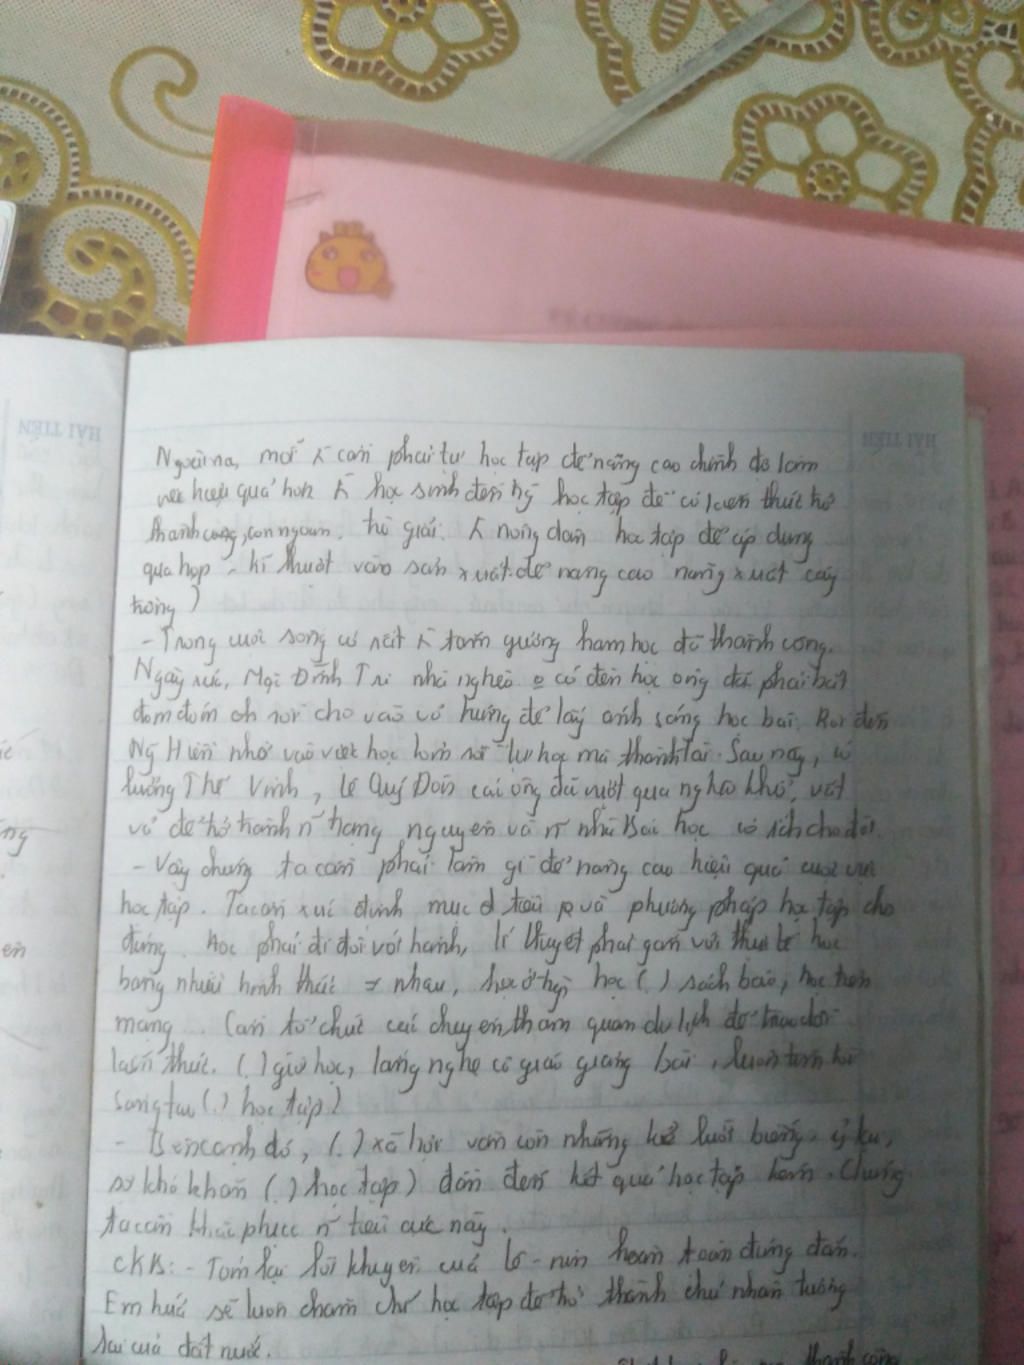 HẢI TIẾN
HẢI TIẾN
mỗi cần phải tự học tập để nâng cao trình độ làm
việc hiệu quả hơn học sinh đến học tập để có kiến thức trở
thành công, con ngoan, trò giỏi. nông dân học tập để áp dụng
khoa học - kĩ thuật vào sản xuất để nâng cao năng xuất cây
trồng)
- Trong cuộc sống có rất tấm gương ham học đã thành công.
Ngày xưa, Mạc Đĩnh Tri nhà nghèo có đèn học ông đã phải bắt
đom đóm rồi cho vào vỏ trứng để lấy ánh sáng học bài. Rồi đến
Ng Hiền nhờ vào việc học lỏm rồi tự học mà thành tài. Sau này, có
Lương Thế Vinh, Lê Quý Đôn các ông đã vượt qua nghèo khó, vất
vả để trở thành n~ trạng nguyên và n~ nhà Bác học có ích cho đời.
- Vậy chúng ta cần phải làm gì để nâng cao hiệu quả của việc
học tập. Ta cần xác định mục đ tiêu và phương pháp học tập cho
đúng. Học phải đi đôi với hành, lí thuyết phải gắn với thực tế học
bằng nhiều hình thức ≠ nhau, học ở học (.) sách báo, học trên
mạng. Cần tổ chức các chuyến tham quan du lịch để trao dồi
kiến thức. (.) giờ học, lắng nghe cô giáo giảng bài, luôn tìm tòi
sáng tạo (.) học tập)
- Bên cạnh đó, (.) xã hội vẫn còn những kẻ lười biếng, ỷ lại,
sợ khó khăn (.) học tập) dẫn đến kết quả học tập kém. Chúng
ta cần khắc phục n~ tiêu cực này.
CKB: - Tóm lại lời khuyên của Lê-nin hoàn toàn đúng đắn.
Em hứa sẽ luôn chăm chỉ học tập để trở thành chủ nhân tương
lai của đất nước.
thành công